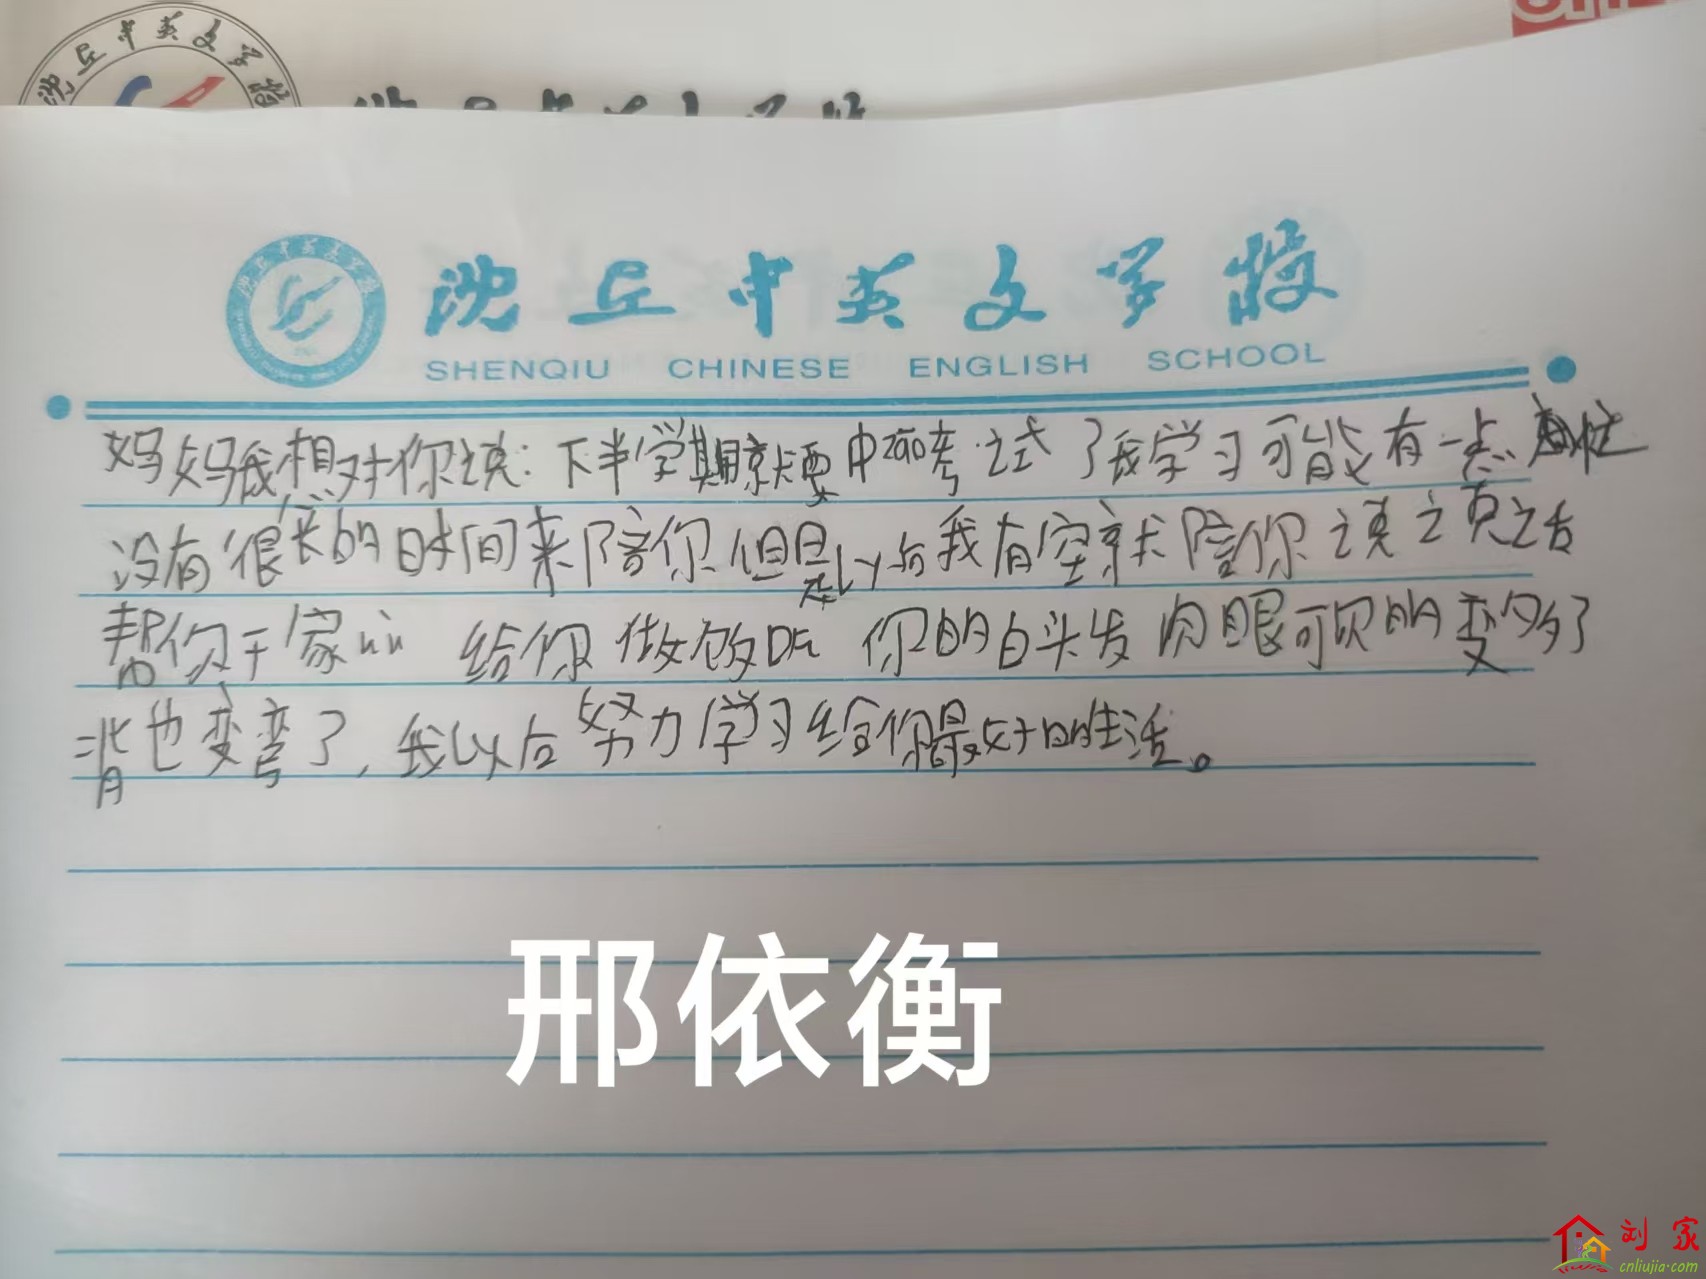 沈丘中英文学校
沈丘中英文学校
SHENQIU CHINESE ENGLISH SCHOOL
妈妈我想对你说：下半学期就要中考试了我学习可能有一点忙
没有很长的时间来陪你但是以后我有空就陪你说说话
帮你干家 给你做饭吃 你的白头发肉眼可见的变多了
背也变弯了，我以后努力学习给你最好的生活。
邢依衡
刘家
cnliujia.com